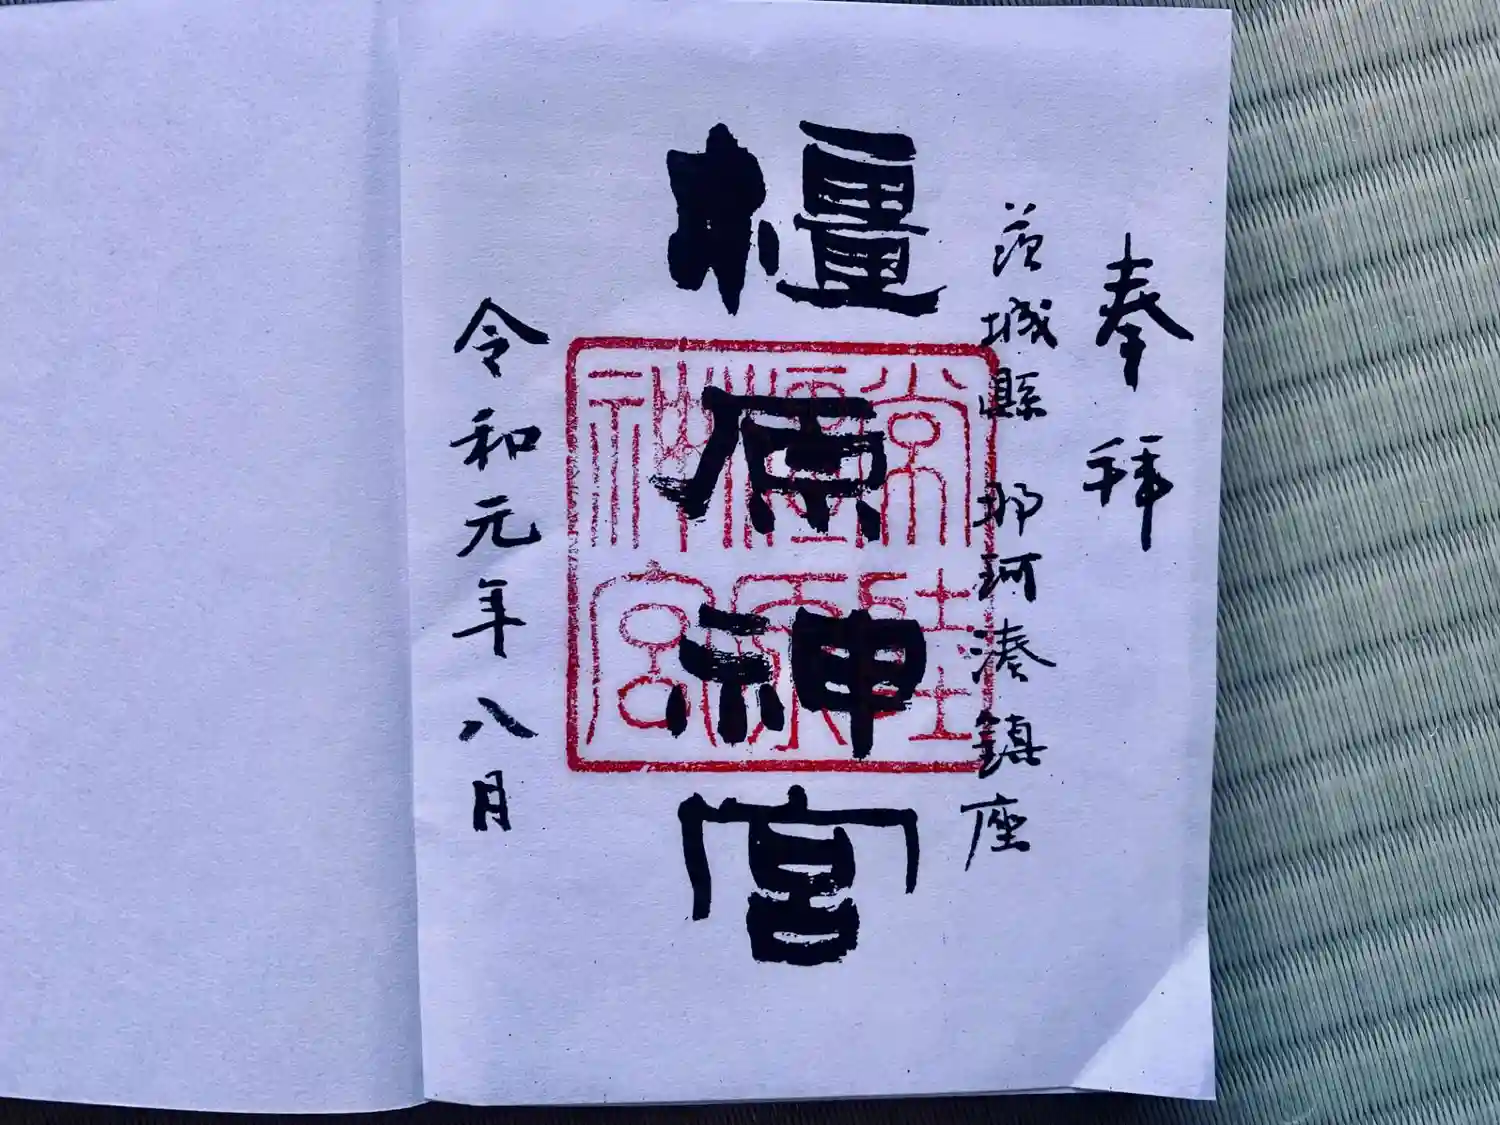 奉拜
茨城縣 那珂湊鎮座
橿原神宮
常陸
橿原
神宮
令和元年八月